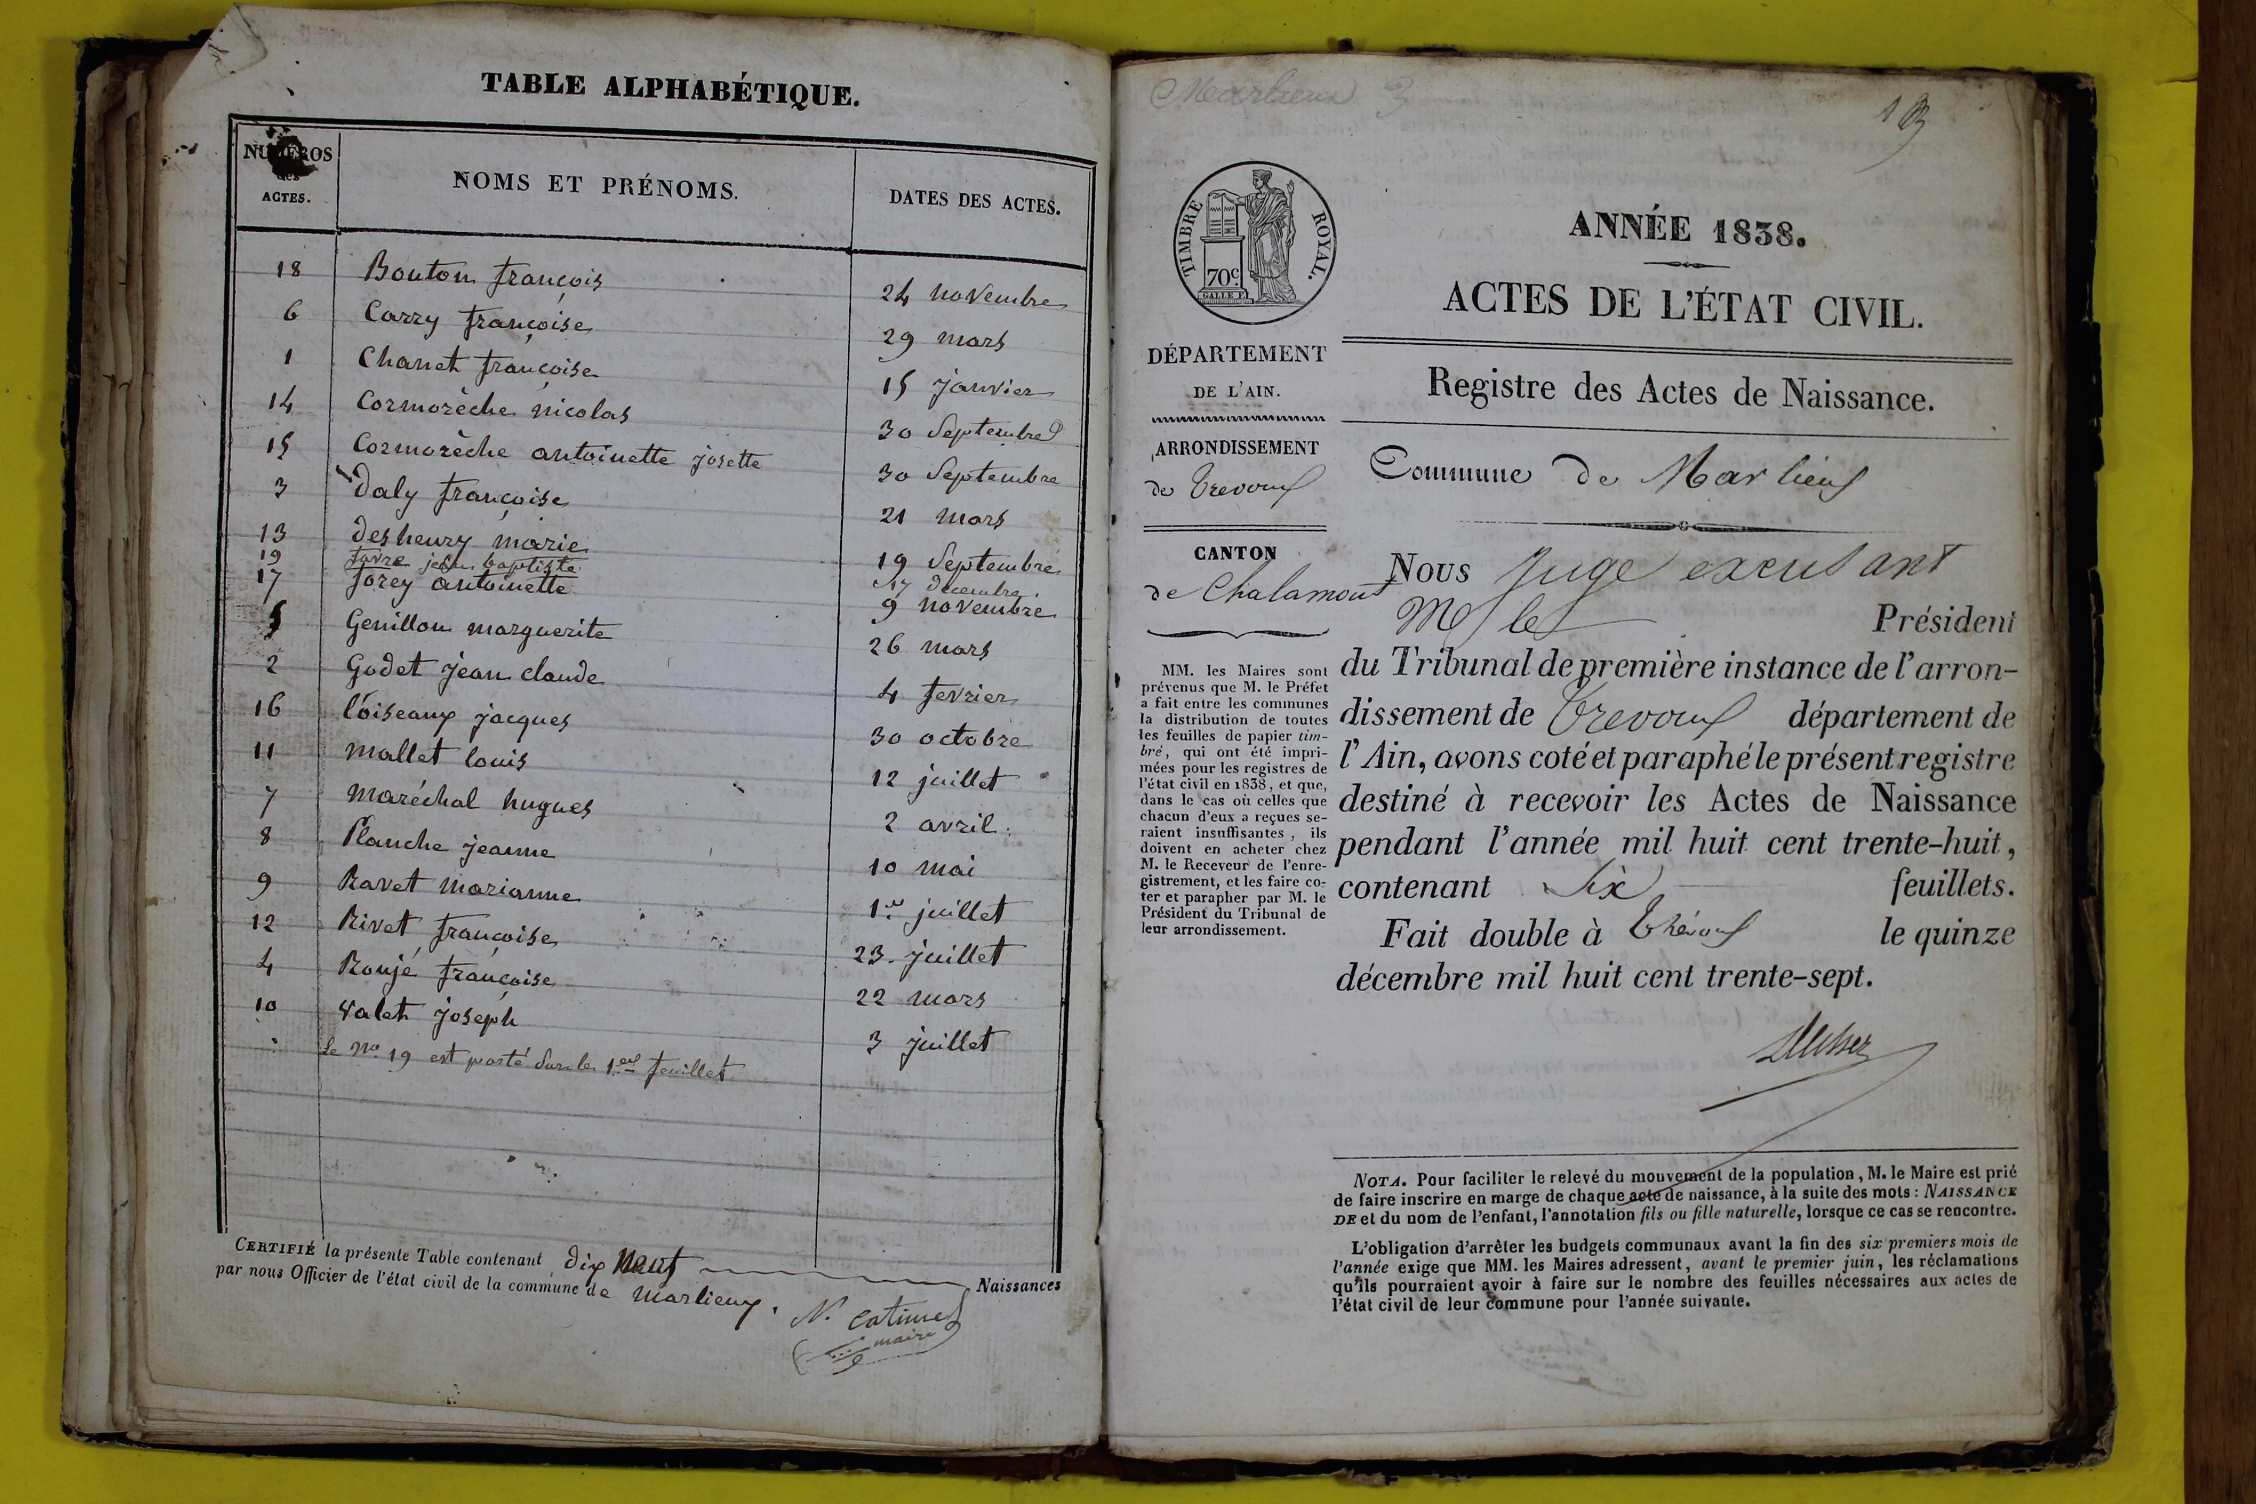 TABLE ALPHABÉTIQUE.
NUMÉROS des ACTES. NOMS ET PRÉNOMS. DATES DES ACTES.
18 Bouton françois 24 novembre
6 Carry françoise 29 mars
1 Chanet françoise 15 janvier
14 Cormorèche nicolas 30 Septembre
15 Cormorèche antoinette josette 30 Septembre
3 daly françoise 21 mars
13 desheury marie 19 Septembre
19 favre jean baptiste 17 decembre
17 forey antoinette 9 novembre
5 Genillon marguerite 26 mars
2 Godet jean claude 4 fevrier
16 l'oiseaux jacques 30 octobre
11 mallet louis 12 juillet
7 maréchal hugues 2 avril
8 Planche jeanne 10 mai
9 Ravet marianne 1er juillet
12 Rivet françoise 23 juillet
4 Roujé françoise 22 mars
10 valet joseph 3 juillet
Le No 19 est porté Sur le 1er feuillet
CERTIFIÉ la présente Table contenant dix neuf Naissances
par nous Officier de l'état civil de la commune de marlieux.
N. Catimel
maire
Marlieux 3
TIMBRE ROYAL.
70c
ANNÉE 1838.
ACTES DE L'ÉTAT CIVIL.
DÉPARTEMENT
DE L'AIN.
ARRONDISSEMENT
de Trevoux
CANTON
de Chalamont
MM. les Maires sont
prévenus que M. le Préfet
a fait entre les communes
la distribution de toutes
les feuilles de papier tim-
bré, qui ont été impri-
mées pour les registres de
l'état civil en 1838, et que,
dans le cas où celles que
chacun d'eux a reçues se-
raient insuffisantes, ils
doivent en acheter chez
M. le Receveur de l'enre-
gistrement, et les faire co-
ter et parapher par M. le
Président du Tribunal de
leur arrondissement.
Registre des Actes de Naissance.
Commune de Marlieux
Nous Juge excusant
Mr le Président
du Tribunal de première instance de l'arron-
dissement de Trevoux département de
l'Ain, avons coté et paraphé le présent registre
destiné à recevoir les Actes de Naissance
pendant l'année mil huit cent trente-huit,
contenant Six feuillets.
Fait double à Trévoux le quinze
décembre mil huit cent trente-sept.
NOTA. Pour faciliter le relevé du mouvement de la population, M. le Maire est prié
de faire inscrire en marge de chaque acte de naissance, à la suite des mots : NAISSANCE
DE et du nom de l'enfant, l'annotation fils ou fille naturelle, lorsque ce cas se rencontre.
L'obligation d'arrêter les budgets communaux avant la fin des six premiers mois de
l'année exige que MM. les Maires adressent, avant le premier juin, les réclamations
qu'ils pourraient avoir à faire sur le nombre des feuilles nécessaires aux actes de
l'état civil de leur commune pour l'année suivante.